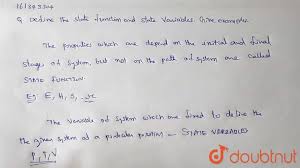 161343304
Q Define the state function and state variables. Give examples
The properties which are depend on the initial and final
stages of system, but not on the path of system are called
STATE FUNCTION.
Eg: E, H, S, etc
The variable of system which are fixed to define the
given system at a particular position – STATE VARIABLES
P, T, V
doubtnut